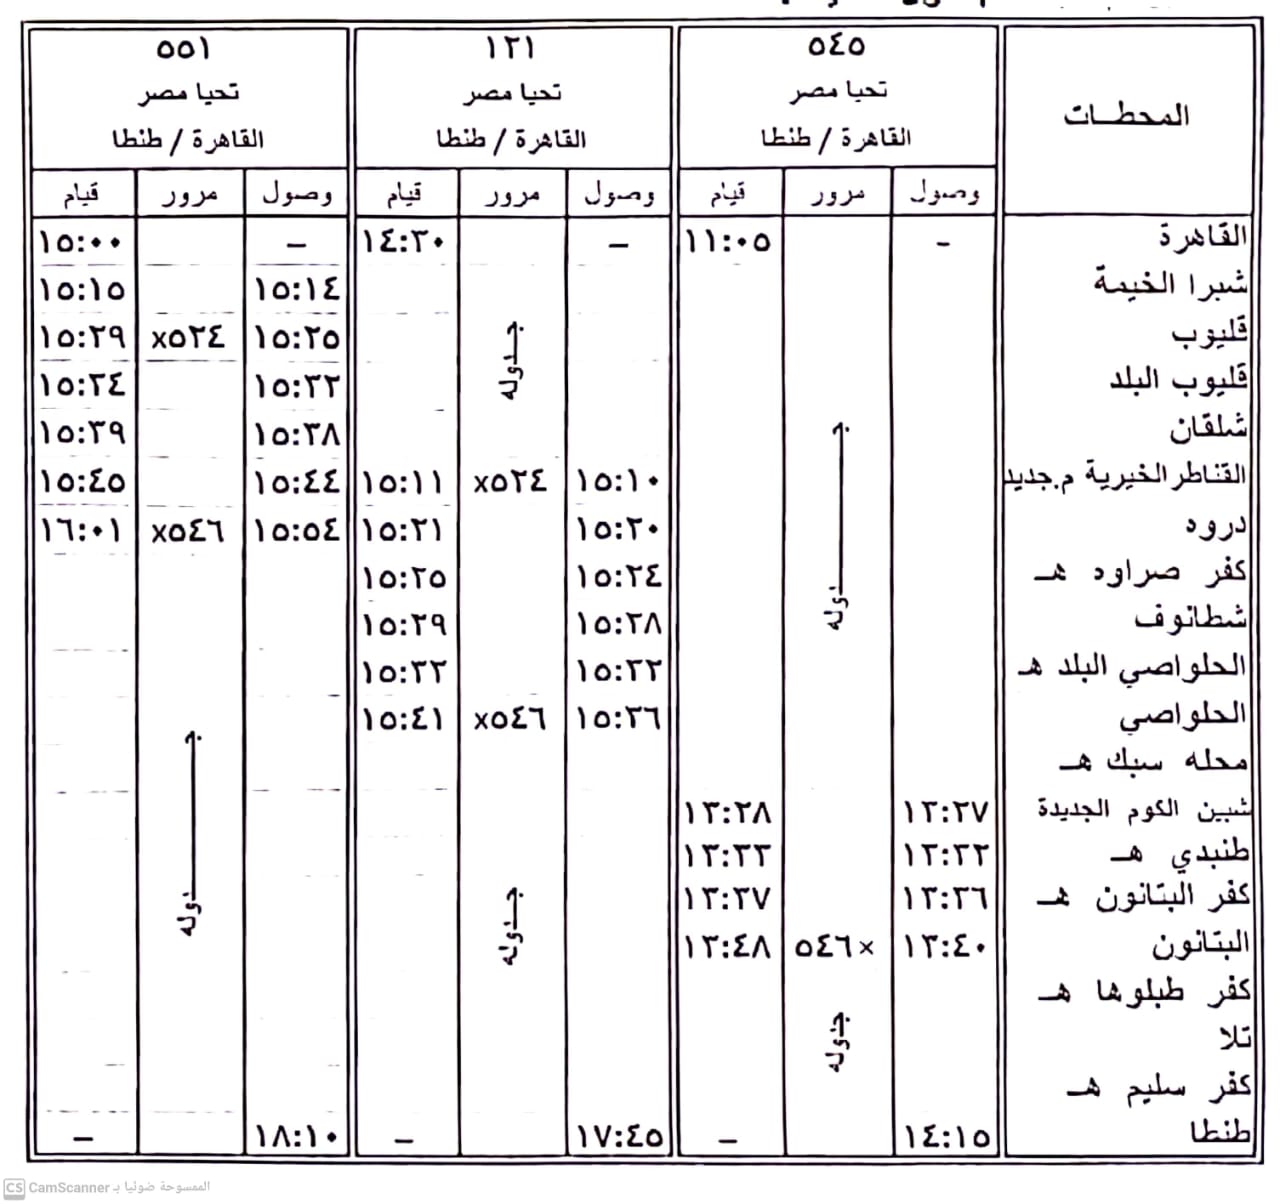 المحطـات
٥٤٥
تحيا مصر
القاهرة / طنطا
١٢١
تحيا مصر
القاهرة / طنطا
٥٥١
تحيا مصر
القاهرة / طنطا
وصول مرور قيام وصول مرور قيام وصول مرور قيام
القاهرة - ١١:٠٥ – ١٤:٣٠ – ١٥:٠٠
شبرا الخيمة ١٥:١٤ ١٥:١٥
قليوب جـدوله ١٥:٢٥ ٥٣٤x ١٥:٢٩
قليوب البلد ١٥:٣٣ ١٥:٣٤
شلقان جـدوله ١٥:٣٨ ١٥:٣٩
القناطر الخيرية م.جديد ١٥:١٠ ٥٣٤x ١٥:١١ ١٥:٤٤ ١٥:٤٥
دروه ١٥:٢٠ ١٥:٢١ ١٥:٥٤ ٥٤٦x ١٦:٠١
كفر صراوه هـ ١٥:٢٤ ١٥:٢٥
شطانوف ١٥:٢٨ ١٥:٢٩
الحلواصي البلد هـ ١٥:٣٢ ١٥:٣٣
الحلواصي ١٥:٣٦ ٥٤٦x ١٥:٤١
محله سبك هـ جـدوله
شبين الكوم الجديدة ١٣:٢٧ ١٣:٢٨
طنبدي هـ ١٣:٣٢ ١٣:٣٣
كفر البتانون هـ ١٣:٣٦ ١٣:٣٧
البتانون ١٣:٤٠ ٥٤٦x ١٣:٤٨ جـدوله
كفر طبلوها هـ
تلا جـدوله
كفر سليم هـ
طنطا ١٤:١٥ – ١٧:٤٥ – ١٨:١٠ –
CS CamScanner الممسوحة ضوئيا بـ